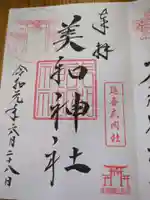 奉拝
延喜式内社
美和神社
令和元年六月二十八日